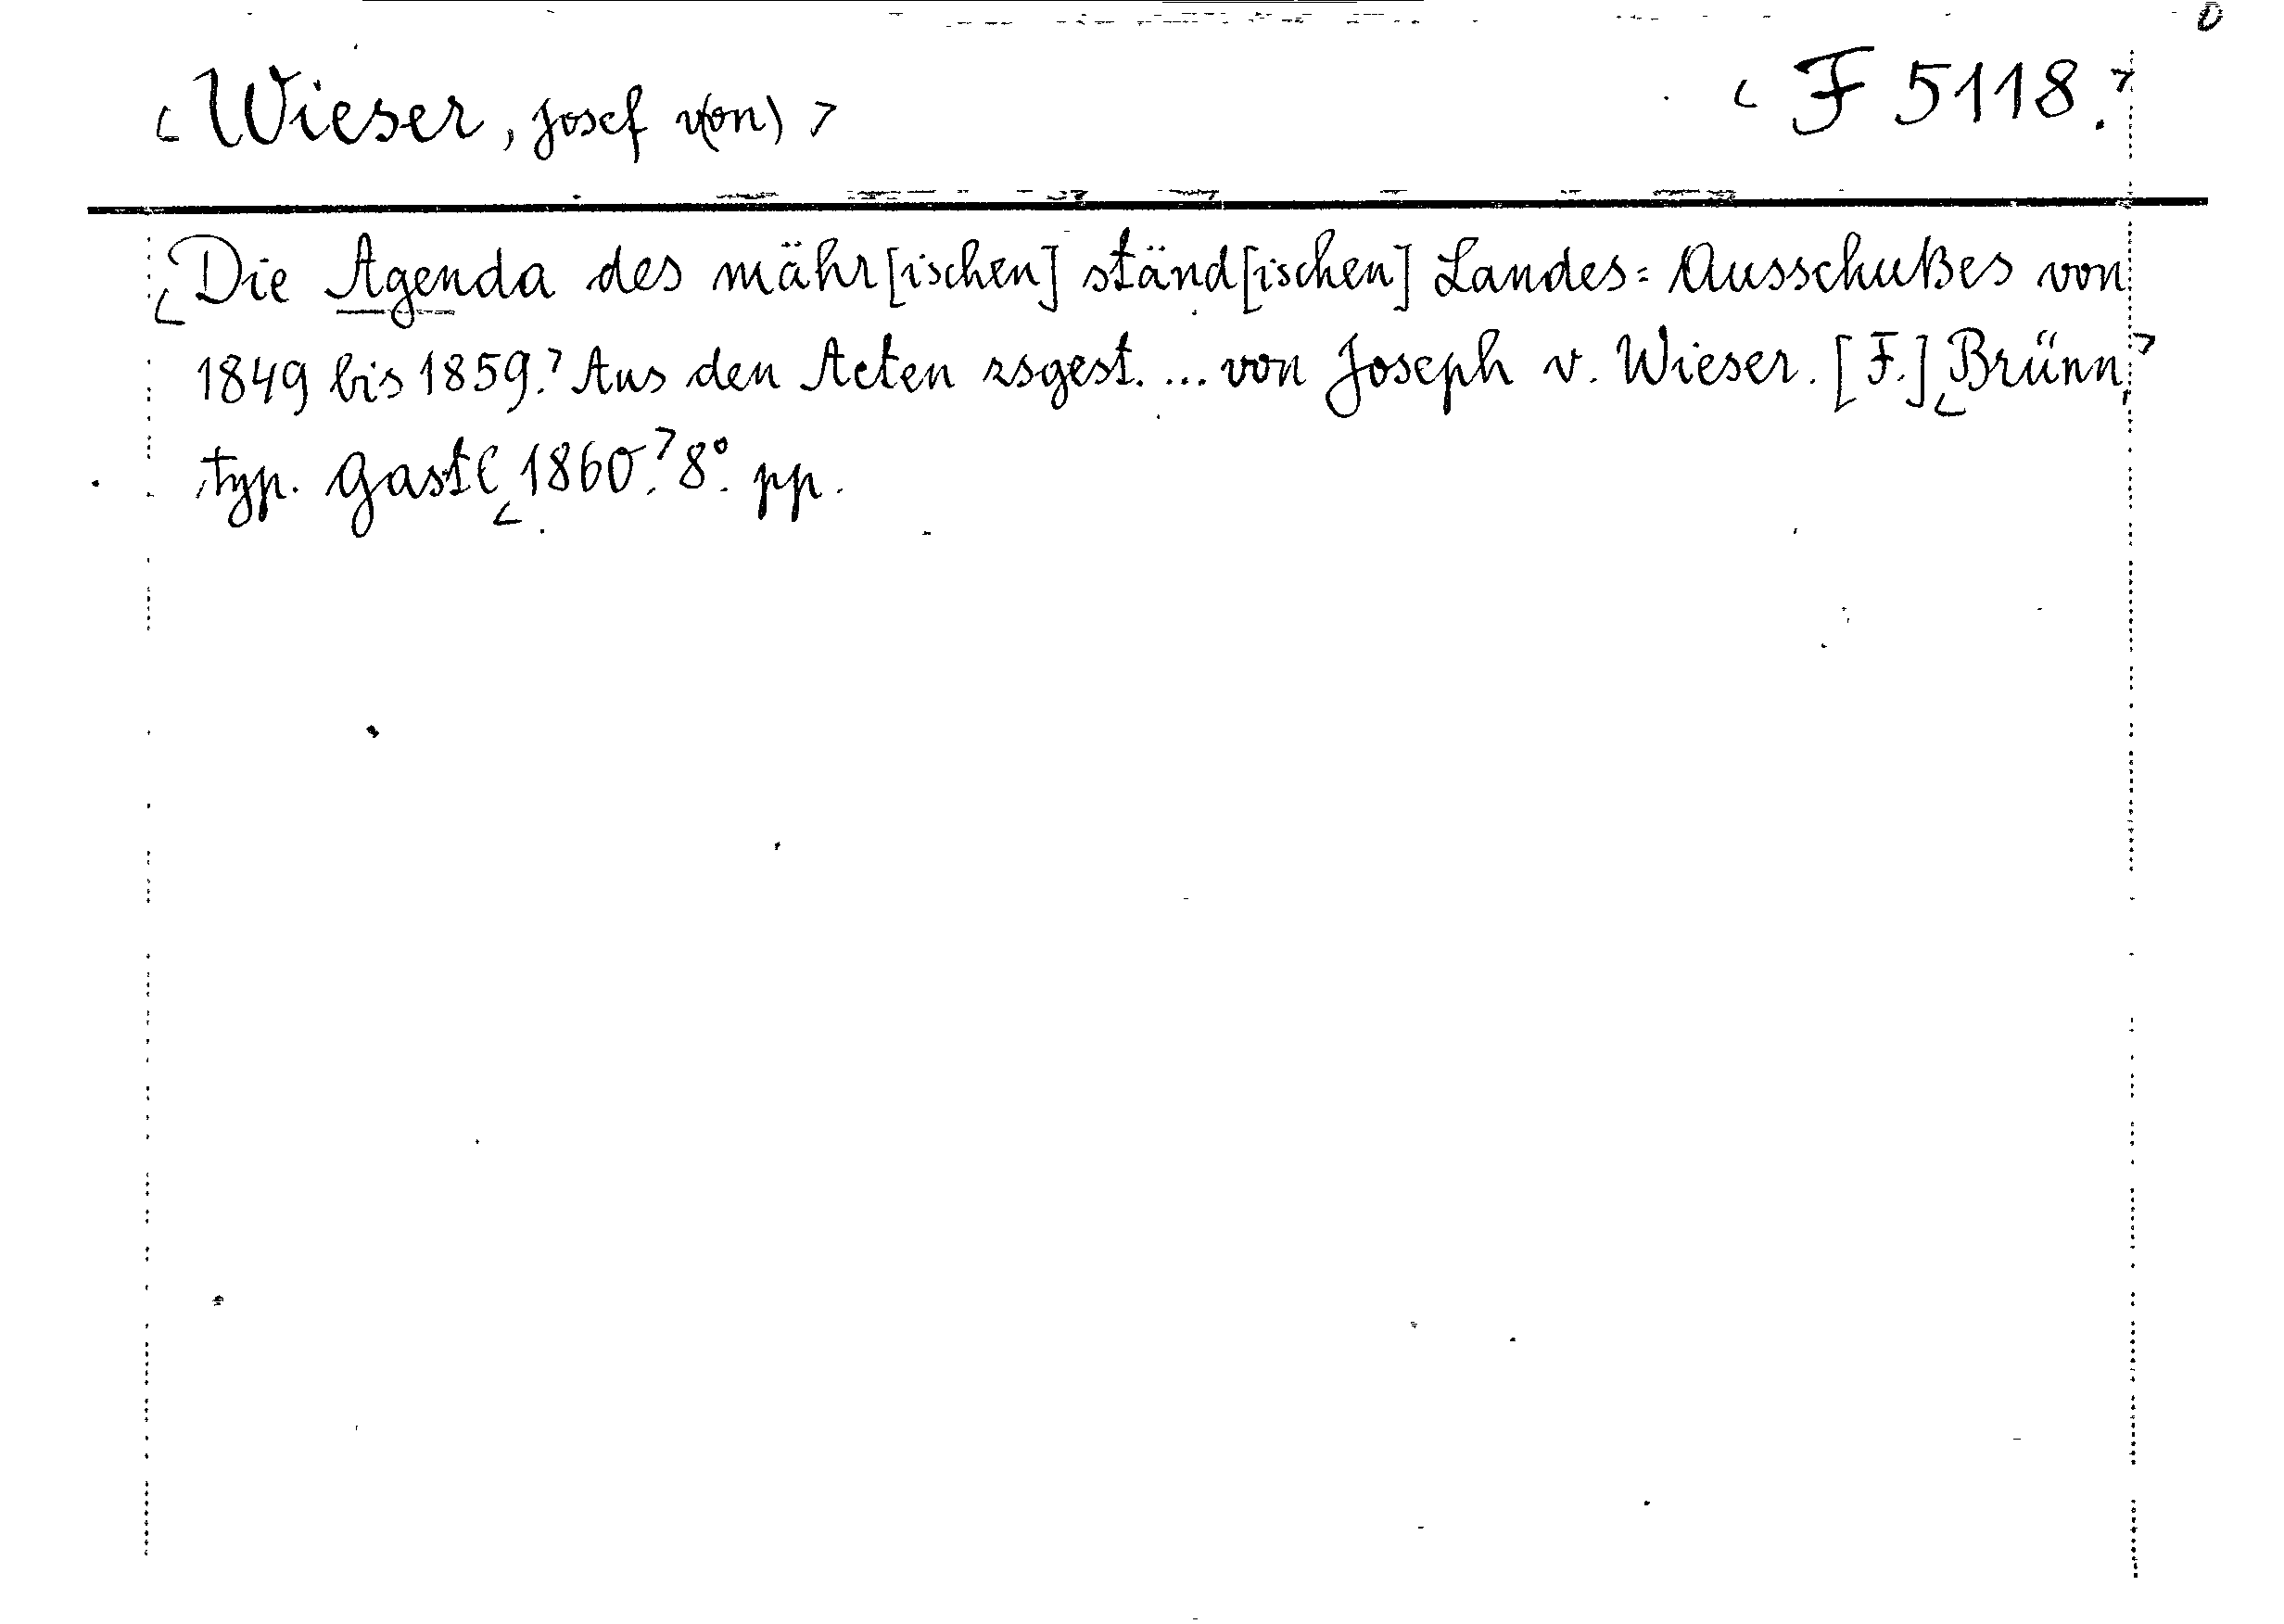 Wieser, Josef v(on) F 5118.
Die Agenda des mähr[ischen] ständ[ischen] Landes=Ausschußes von
1849 bis 1859. Aus den Acten zsgest. ... von Joseph v. Wieser. [F.] Brünn,
typ. Gastl 1860. 8°. pp.